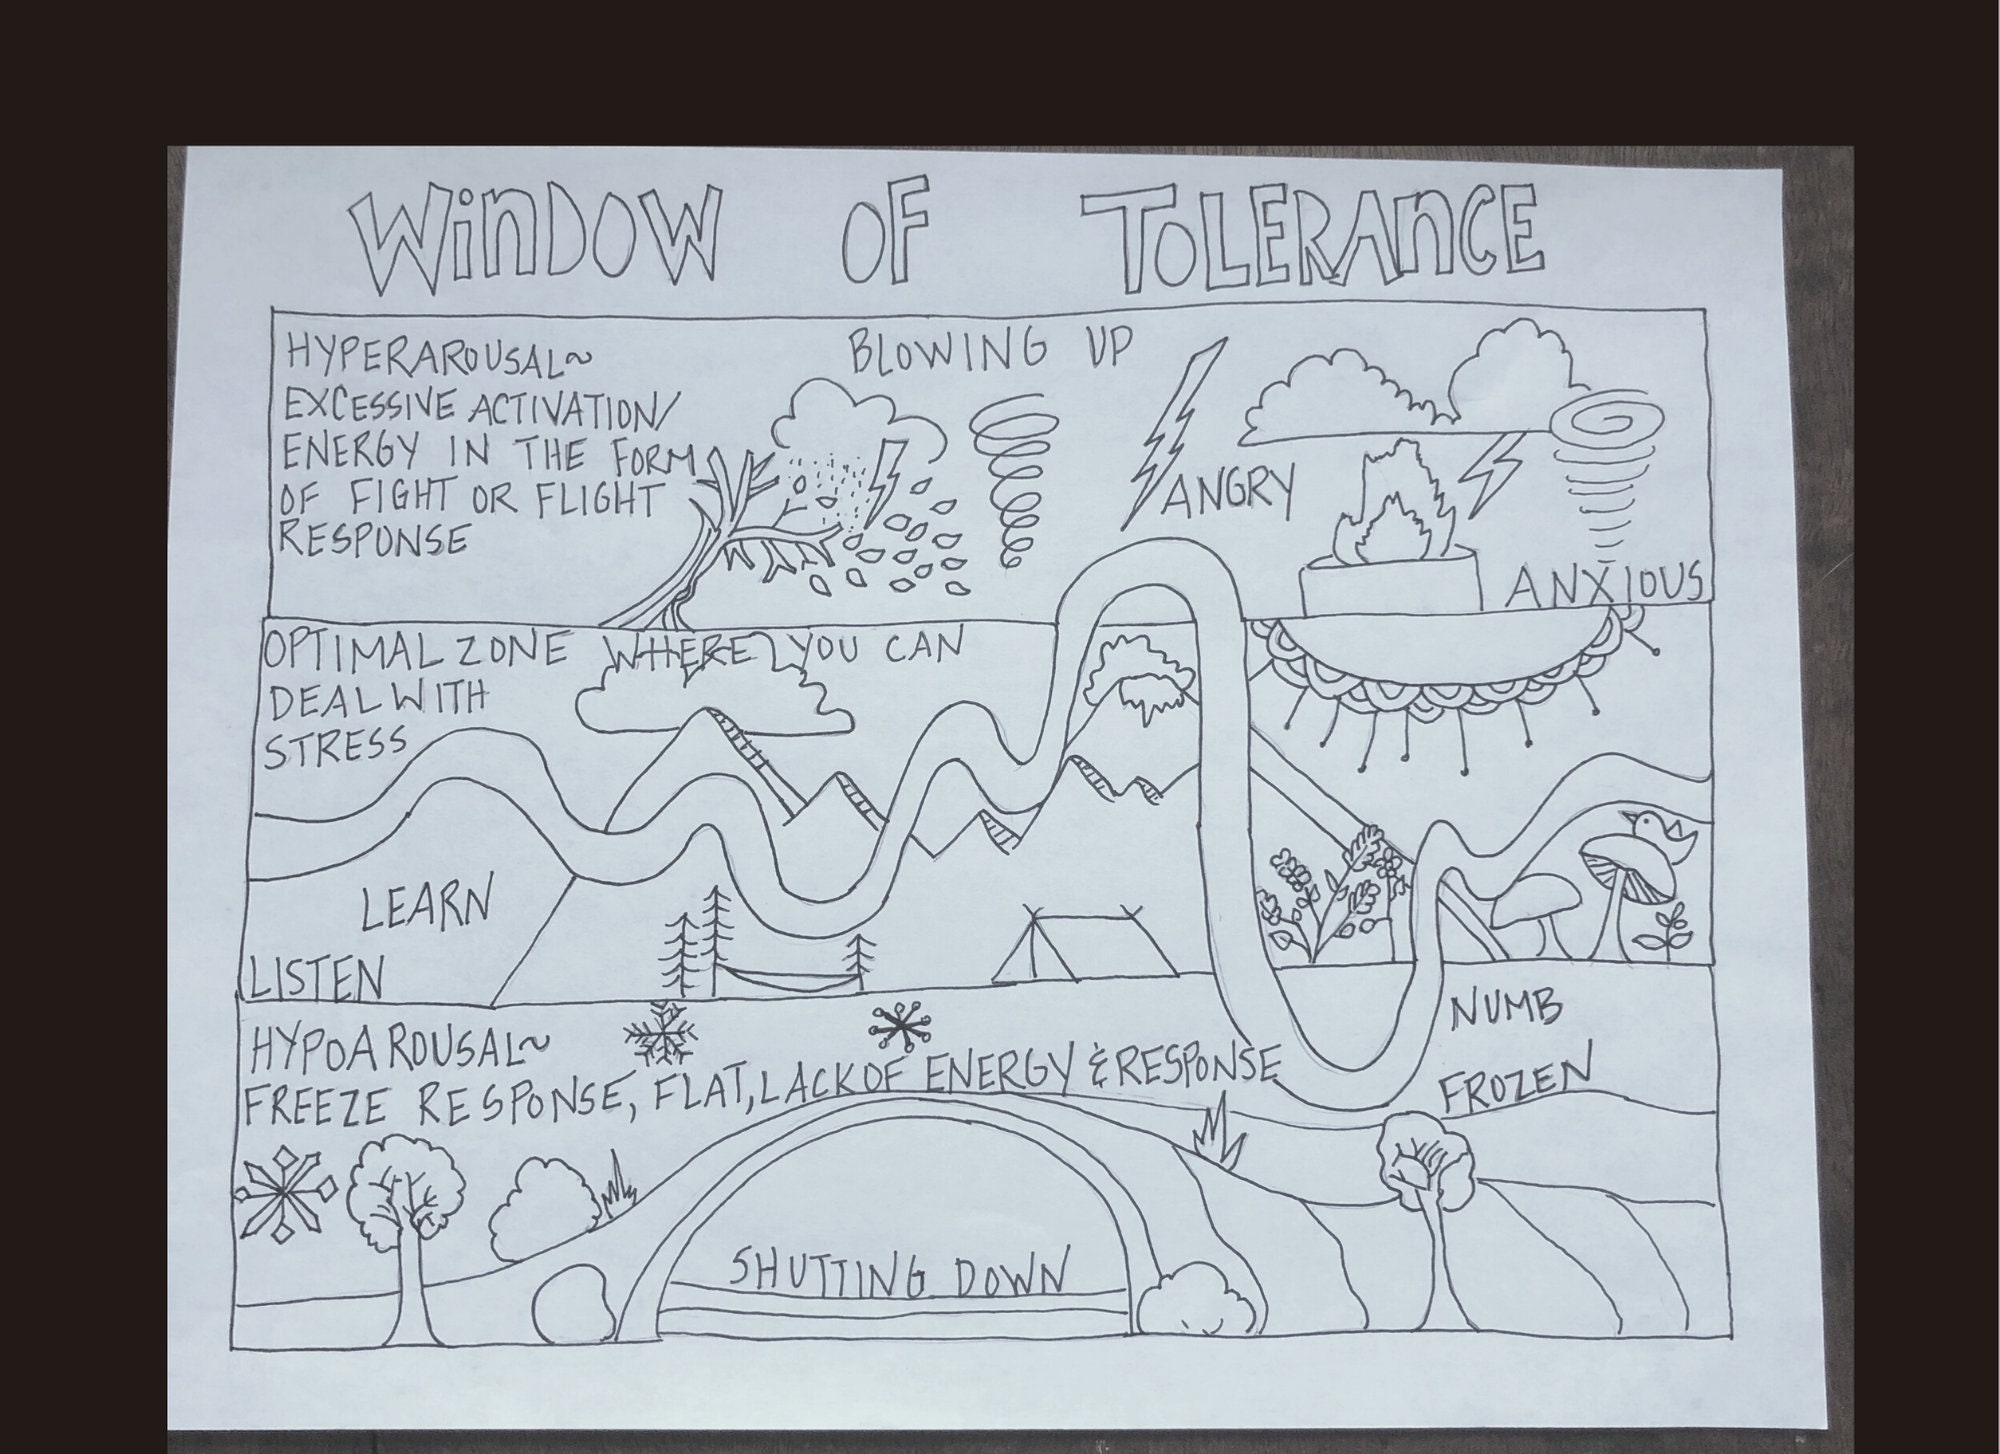 WinDOW OF TOLERAnCE
HYPERAROUSAL~
EXCESSIVE ACTIVATION/
ENERGY IN THE FORM
OF FIGHT OR FLIGHT
RESPONSE
BLOWING UP
ANGRY
ANXIOUS
OPTIMAL ZONE WHERE YOU CAN
DEAL WITH
STRESS
LEARN
LISTEN
HYPOAROUSAL~
FREEZE RESPONSE, FLAT, LACK OF ENERGY & RESPONSE
NUMB
FROZEN
SHUTTING DOWN